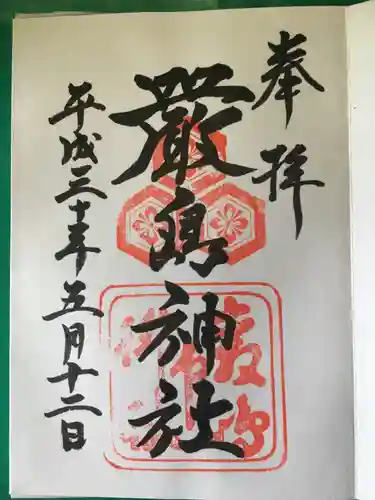 奉拝
厳島神社
平成三十年五月十二日